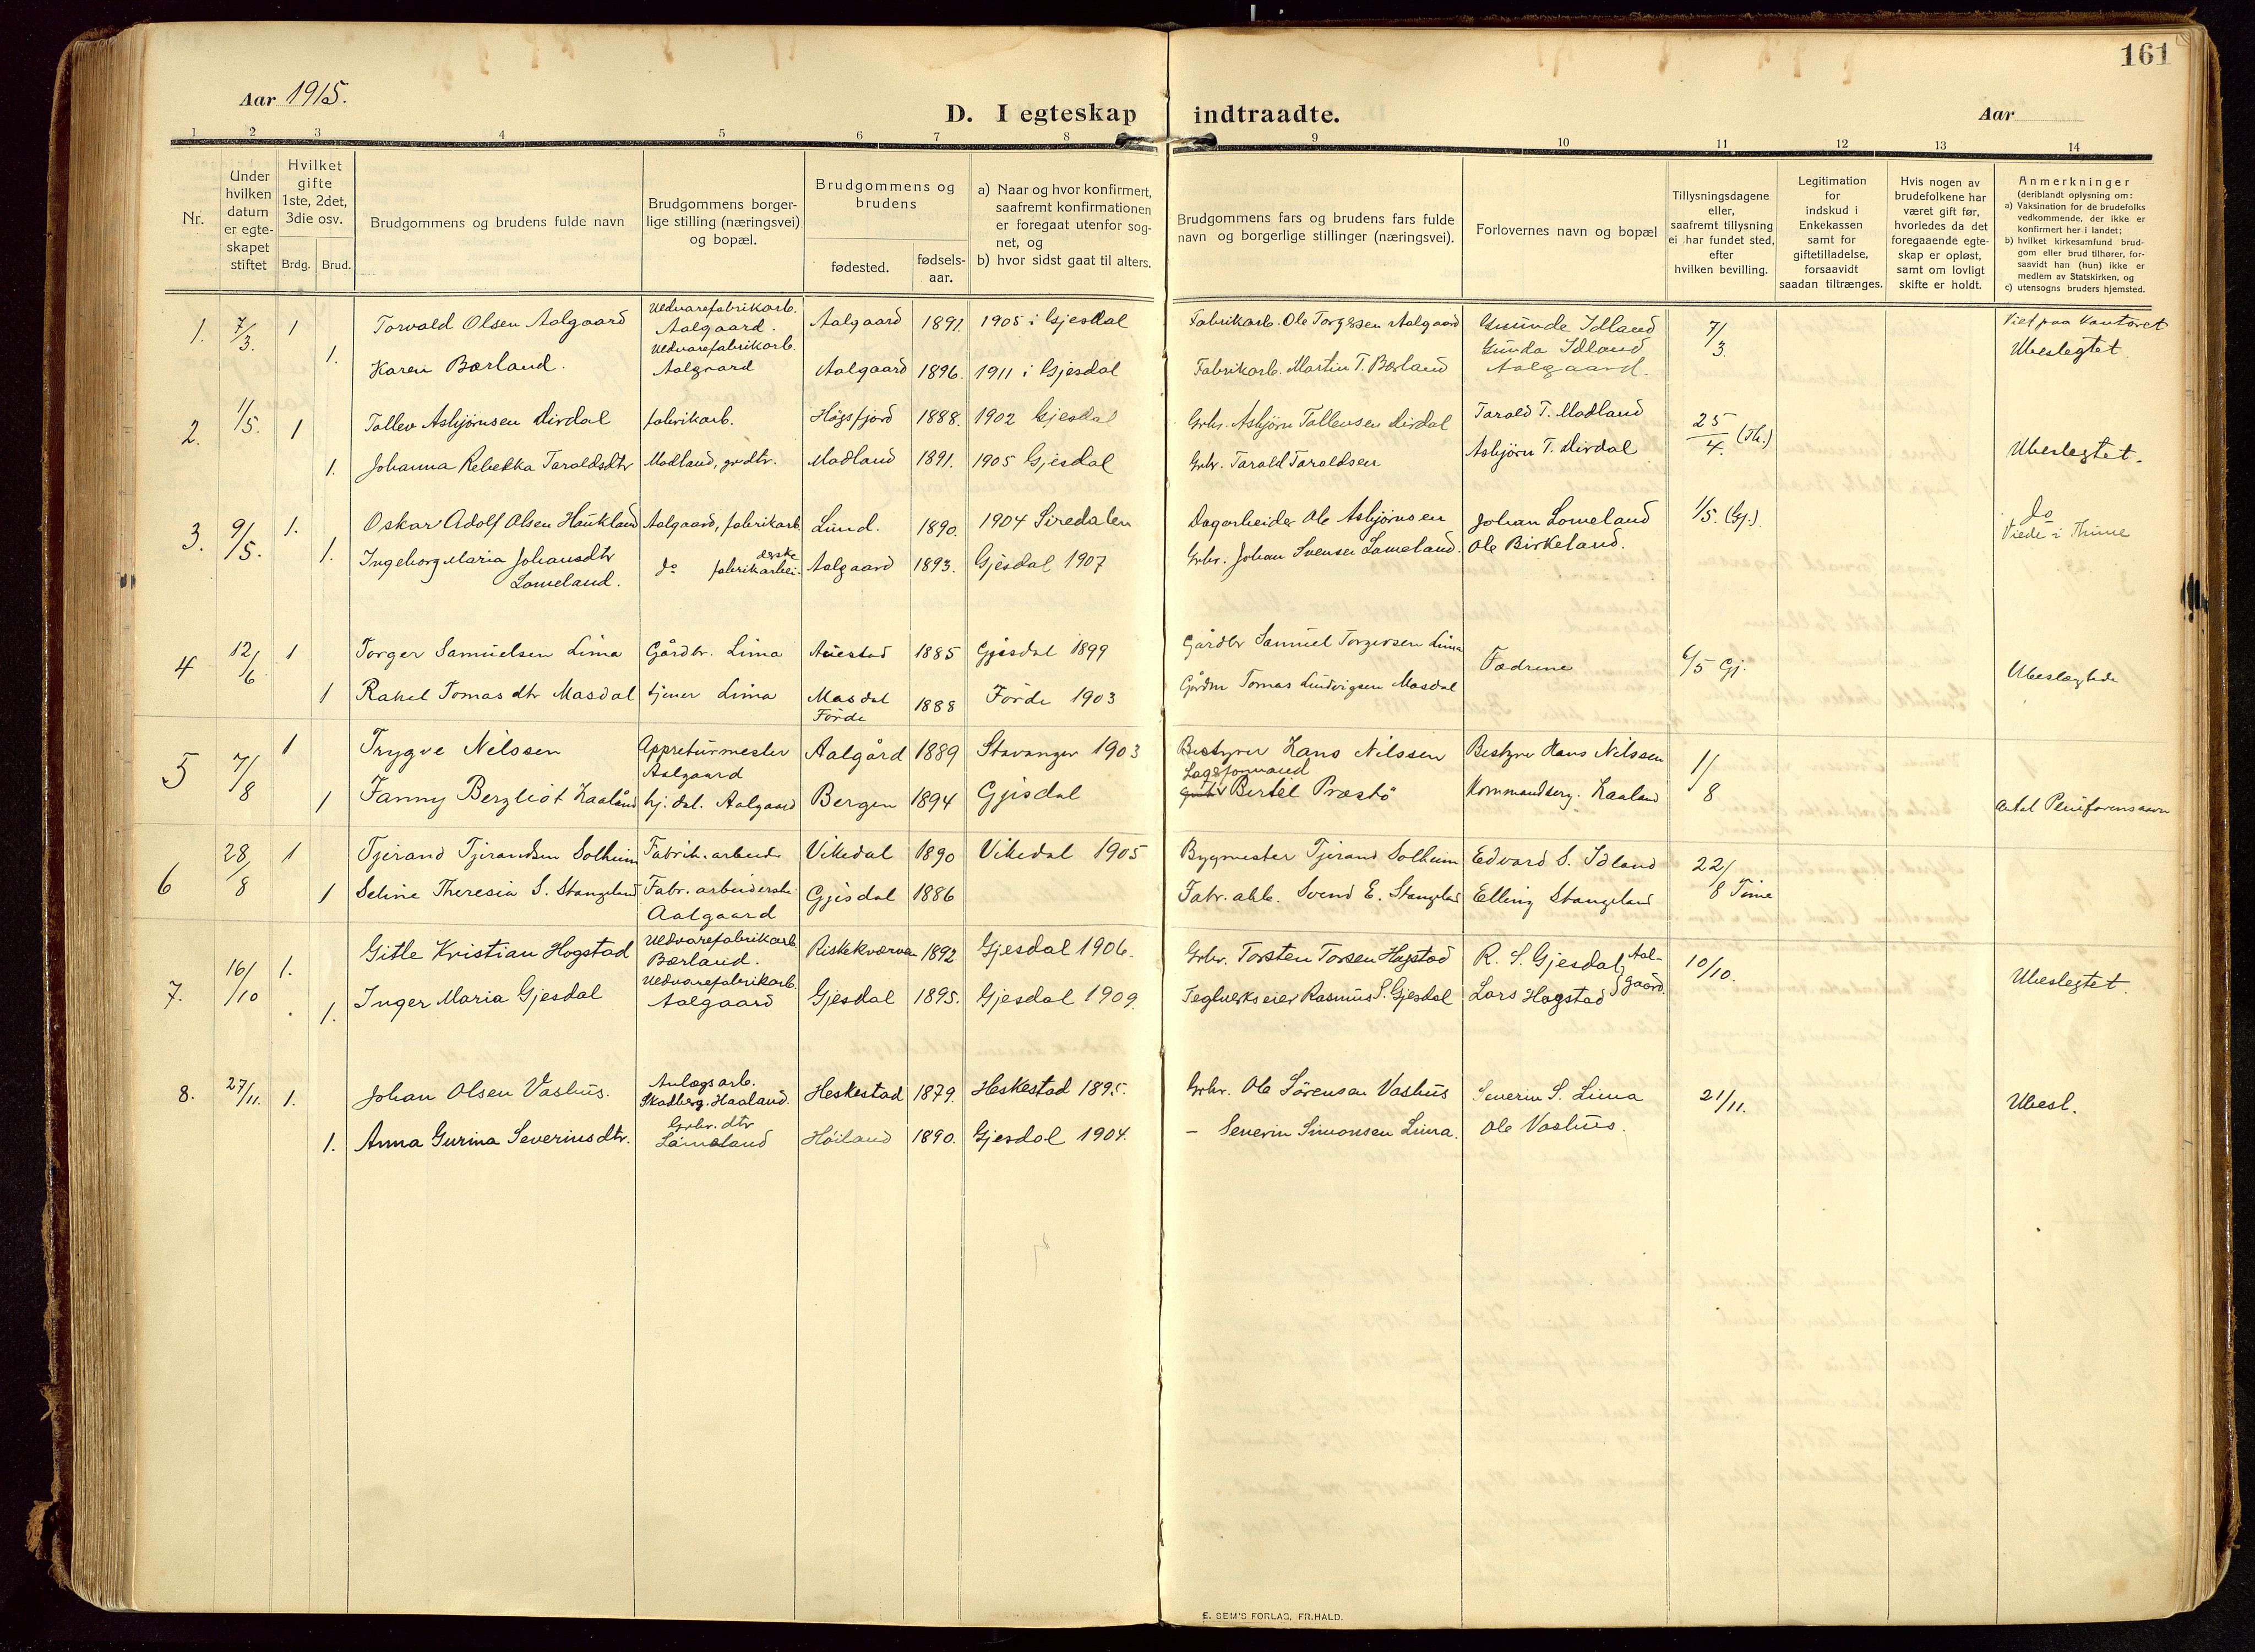 161
Aar 1915.
D. I egteskap indtraadte.
Aar
1 2 3 4 5 6 7 8 9 10 11 12 13 14
Nr.
Under hvilken datum er egte-skapet stiftet
Hvilket gifte 1ste, 2det, 3die osv.
Brdg. Brud.
Brudgommens og brudens fulde navn
Brudgommens borger-lige stilling (næringsvei) og bopæl.
Brudgommens og brudens
fødested.
fødsels-aar.
a) Naar og hvor konfirmert, saafremt konfirmationen er foregaat utenfor sog-net, og
b) hvor sidst gaat til alters.
Brudgommens fars og brudens fars fulde navn og borgerlige stillinger (næringsvei).
Forlovernes navn og bopæl
Tillysningsdagene eller, saafremt tillysning ei har fundet sted, efter hvilken bevilling.
Legitimation for indskud i Enkekassen samt for giftetilladelse, forsaavidt saadan tiltrænges.
Hvis nogen av brudefolkene har været gift før, hvorledes da det foregaaende egte-skap er opløst, samt om lovligt skifte er holdt.
Anmerkninger
(deriblandt oplysning om:
a) Vaksination for de brudefolks vedkommende, der ikke er konfirmert her i landet;
b) hvilket kirkesamfund brud-gom eller brud tilhører, for-saavidt han (hun) ikke er medlem av Statskirken, og
c) utensogns bruders hjemsted.
1. 7/3. 1 Torvald Olsen Aalgaard Uldvarefabrikarb. Aalgaard. Aalgaard 1891. 1905 i Gjesdal Fabrikarb. Ole Torgersen Aalgaard Gunda Idland 7/3. Viet paa kontoret
1. Karen Bærland. Uldvarefabrikarb. Aalgaard Aalgaard 1896. 1911 i Gjesdal Fabrikarb. Martin T. Bærland Aalgaard. Ubeslegtet.
2. 1/5. 1 Tollev Asbjørnsen Dirdal fabrikarb. Høgsfjord 1888. 1902 Gjesdal Grbr. Asbjørn Tollevsen Dirdal Tarald T. Madland 25/4. (Th.)
1. Johanna Rebekka Taraldsdtr Madland, grdtr. Madland 1891. 1905 Gjesdal Grbr. Tarald Taraldsen Asbjørn T. Dirdal Ubeslegtet.
3. 9/5. 1. Oskar Adolf Olsen Haukland Aalgaard, fabrikarb. Lund. 1890. 1904 Siredalen Dagarbeider Ole Asbjørnsen Johan Lomeland 1/5. (Gj.) do
1. Ingeborg Maria Johansdtr Lomeland. do fabrikarbei-derske Aalgaard 1893. Gjesdal 1907 Grbr. Johan Svensen Lomeland. Ole Birkeland. Viede i Thime
4 12/6 1 Torger Samuelsen Lima Gårdbr. Lima Auestad 1885 Gjesdal 1899 Gårdbr Samuel Torgersen Lima Fædrene 6/5 Gj.
1 Rakel Tomasdtr Masdal tjener Lima Masdal Förde 1888 Förde 1903 Gårdm Tomas Ludvigsen Masdal Ubeslegtede
5 7/8 1 Trygve Nilssen Appreturmester Aalgaard Aalgård 1889 Stavanger 1903 Bestyrer Hans Nilssen Bestyrer Hans Nilssen 1/8
1 Fanny Bergliot Haaland hj. dal. Aalgaard Bergen 1894 Gjesdal Lagsformand Bertel Præstö Kommandserg. Haaland
6 28/8 1 Tjerand Tjerandsen Solheim Fabrik.arbeid. Vikedal 1890 Vikedal 1905 Bygmester Tjerand Solheim Edvard S. Idland 22/8 Time
1 Seline Theresia S. Stangeland Fabr. arbeiderske Aalgaard Gjesdal 1886 Fabr. arb. Svend E. Stangeland Elling Stangeland
7. 16/10 1. Gitle Kristian Hogstad Uldvarefabrikarb. Bærland. Riskekværven 1892 Gjesdal 1906. Grbr. Torsten Torsen Hogstad R. S. Gjesdal, Aal-gaard. 10/10.
1. Inger Maria Gjesdal Uldvarefabrikarb. Aalgaard Gjesdal 1895. Gjesdal 1909. Teglverkseier Rasmus S. Gjesdal Lars Hogstad Ubeslegtet.
8. 27/11. 1. Johan Olsen Vashus. Anlægsarb. Skadberg. Haaland. Heskestad 1879. Heskestad 1895. Grbr. Ole Sörensen Vashus Severin S. Lima 21/11. Ubesl.
1. Anna Gurina Severinsdtr. Grbr. dtr Høiland 1890. Gjesdal 1904. – Severin Simonsen Lima. Ole Vashus.
E. SEM'S FORLAG, FR.HALD.